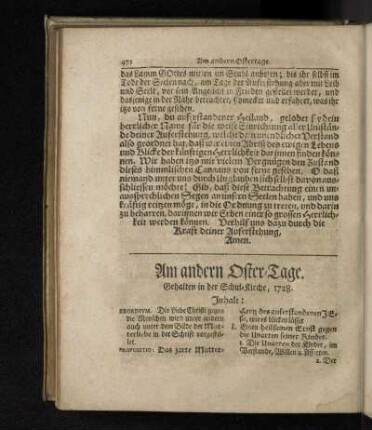 972 Am andern Ostertage.
das Lamm GOttes mitten im Stuhl anbeten; bis ihr selbst im
Tode der Seelen nach, am Tage der Auferstehung aber mit Leib
und Seele, vor sein Angesicht in Frieden gestellet werdet, und
dasjenige in der Nähe betrachtet, schmecket und erfahret, was ihr
itzo von ferne gesehen.
Nun, du auferstandener Heiland, gelobet seyst du
herrlicher Name für die weise Einrichtung aller Umstän-
de deiner Auferstehung, welche dein unendlicher Verstand
also geordnet hat, daß wir einen Abriß des ewigen Lebens
und Blicke der künftigen Herrlichkeit darinnen finden kön-
nen. Wir haben itzo mit vielem Vergnügen den Zustand
dieses himmlischen Canaans von ferne gesehen. O daß
niemand unter uns sich durch Unglauben sich selbst davon aus-
schliessen möchte! Gib, daß diese Betrachtung einen un-
aussprechlichen Segen an unsern Seelen haben, und uns
kräftig reitzen möge, in die Ordnung zu treten, und darin
zu beharren, darinnen wir Erben einer so grossen Herrlich-
keit werden können. Verhilf uns dazu durch die
Kraft deiner Auferstehung,
Amen.
Am andern Oster-Tage.
Gehalten in der Schul-Kirche, 1728.
Inhalt:
EXORDIUM. Die Liebe Christi gegen
die Menschen wird unter andern
auch unter dem Bilde der Mut-
terliebe in der Schrift vorgestel-
let.
PROPOSITIO: Das zarte Mutter-
Hertz des auferstandenen JE-
su, wie es blicken lässet
I. Einen heilsamen Ernst gegen
die Unarten seiner Kinder.
1. Die Unarten der Kinder, im
Verstande, Willen u. Affecten.
2. Der